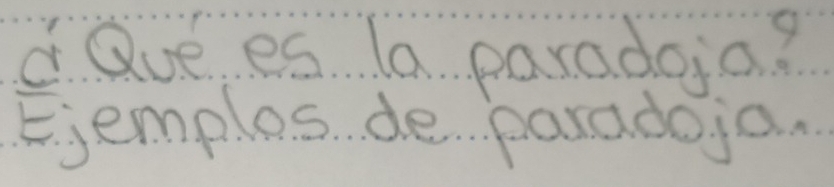 ¿Qué es la paradoja?
Ejemplos de paradoja.